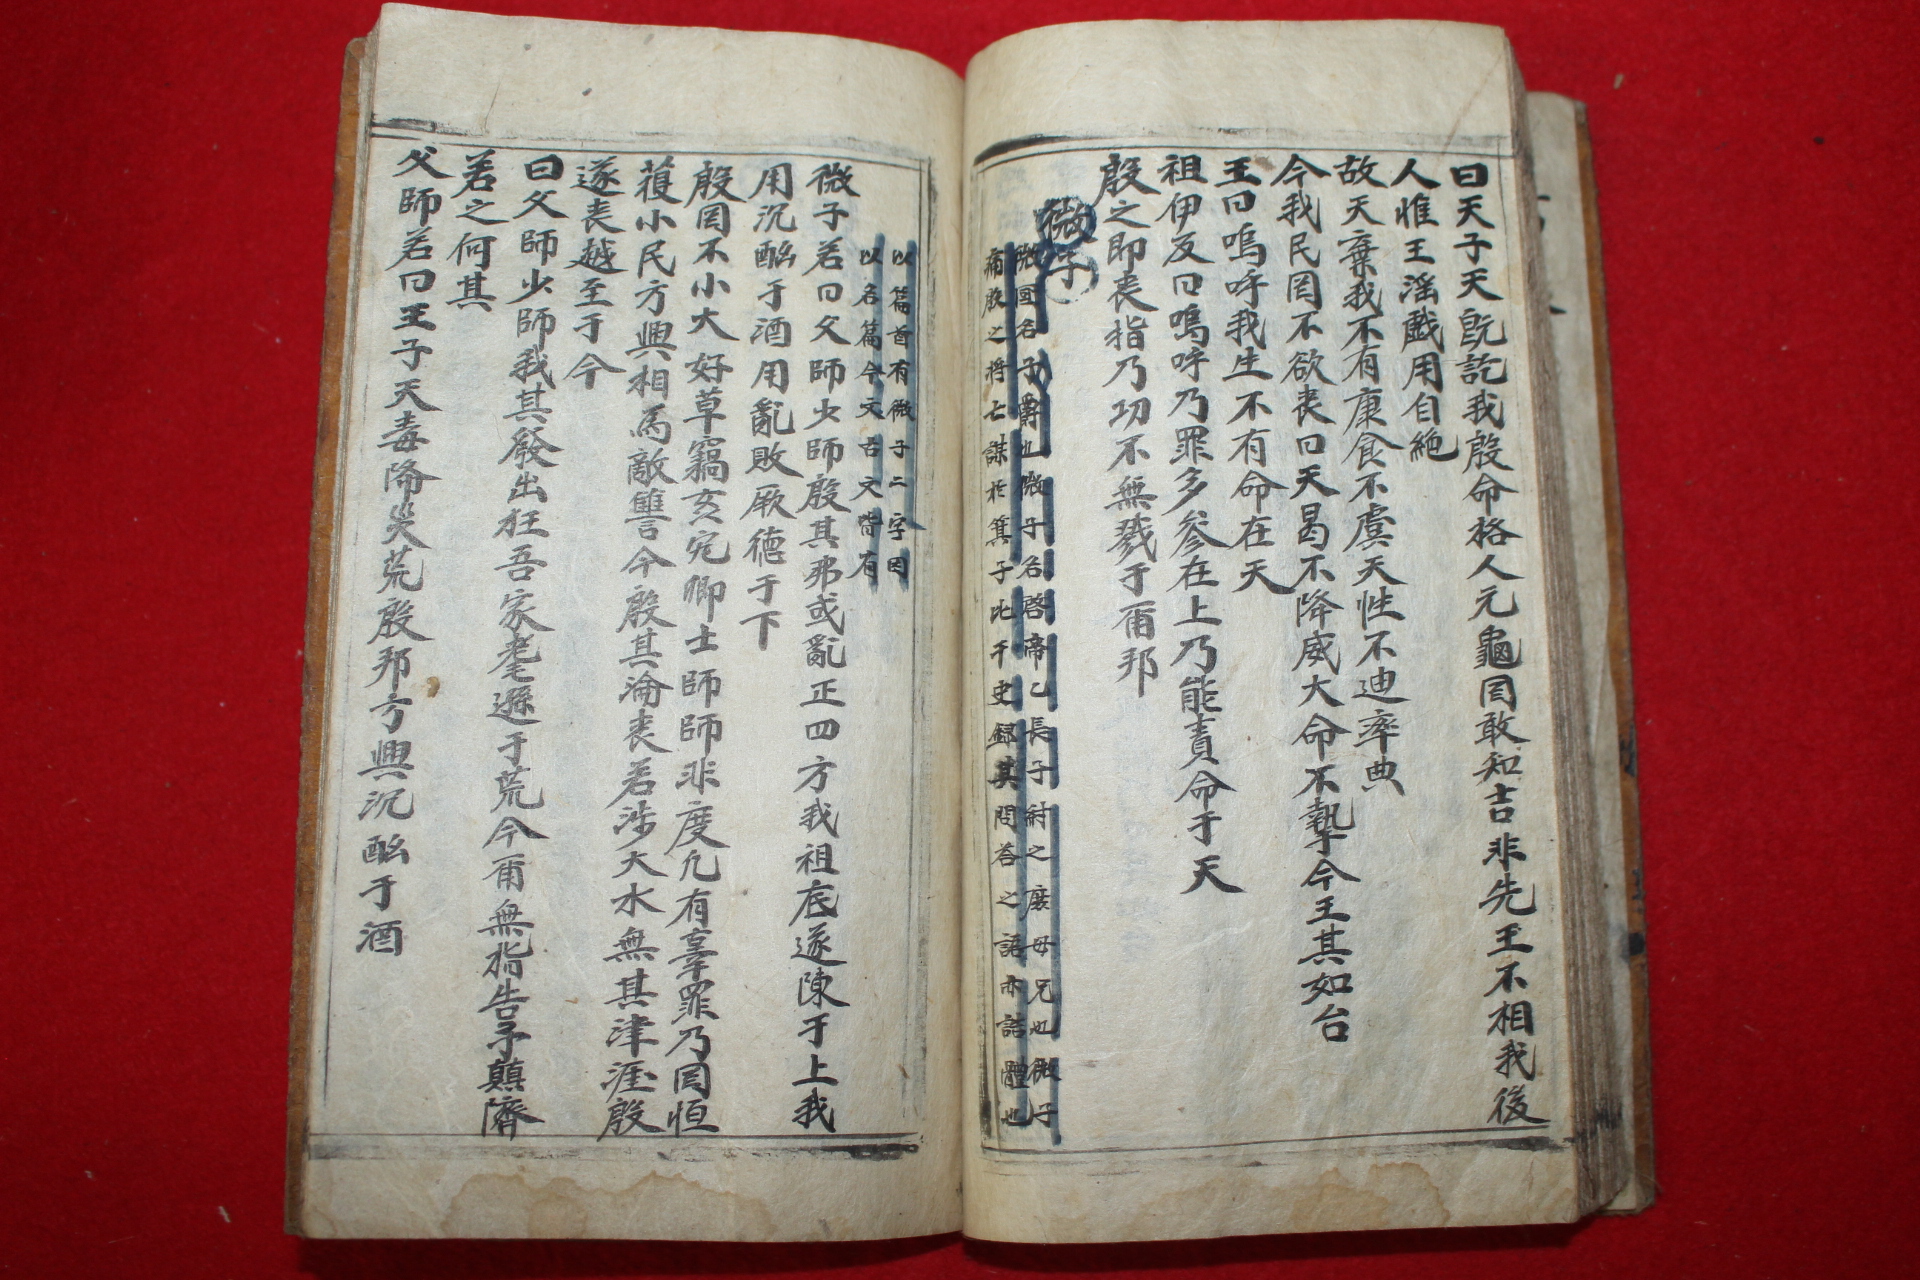 曰天子天旣訖我殷命格人元龜罔敢知吉非先王不相我後
人惟王淫戱用自絶
故天棄我不有康食不虞天性不迪率典
今我民罔不欲喪曰天曷不降威大命不摯今王其如台
王曰嗚呼我生不有命在天
祖伊反曰嗚呼乃罪多參在上乃能責命于天
殷之卽喪指乃功不無戮于爾邦
微子
微國名子爵也微子名啓帝乙長子紂之庻母兄也微子
痛殷之將亡謀於箕子比干史錄其問答之語亦誥體也
以篇首有微子二字因
以名篇今文古文皆有
微子若曰父師少師殷其弗或亂正四方我祖底遂陳于上我
用沉酗于酒用亂敗厥德于下
殷罔不小大好草竊姦宄卿士師師非度凡有辜罪乃罔恒
獲小民方興相爲敵讐今殷其淪喪若涉大水無其津涯殷
遂喪越至于今
曰父師少師我其發出狂吾家耄遜于荒今爾無指告予顚隮
若之何其
父師若曰王子天毒降災荒殷邦方興沉酗于酒